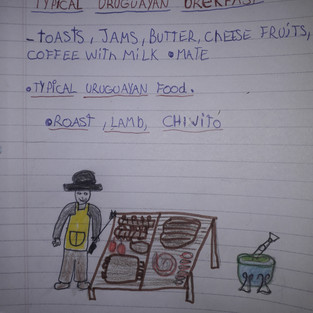 TYPICAL URUGUAYAN BREKFAST
- TOASTS, JAMS, BUTTER, CHEESE FRUITS,
COFFEE WITH MILK • MATE
• TYPICAL URUGUAYAN FOOD.
• ROAST, LAMB, CHIVITÓ